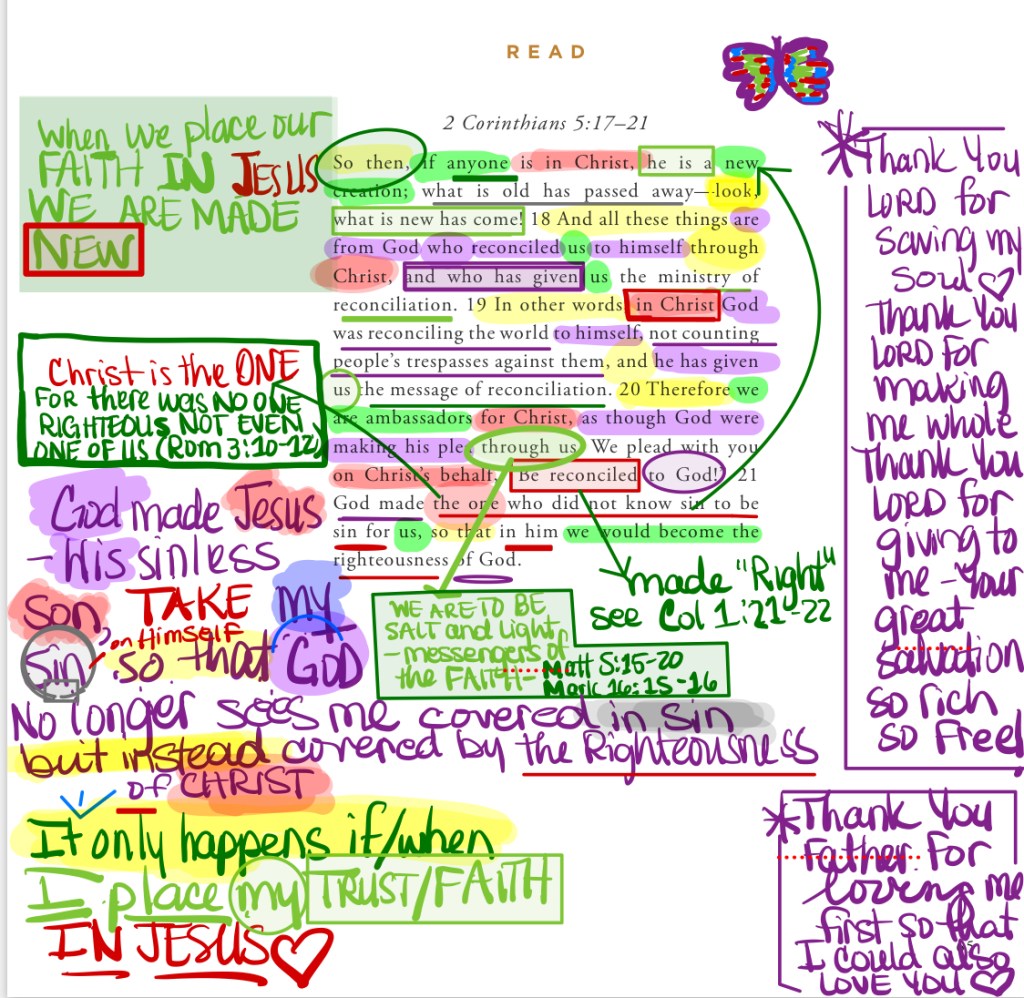 READ
2 Corinthians 5:17–21
When we place our
FAITH IN JESUS
WE ARE MADE
NEW
So then, if anyone is in Christ, he is a new
creation; what is old has passed away—look,
what is new has come! 18 And all these things are
from God who reconciled us to himself through
Christ, and who has given us the ministry of
reconciliation. 19 In other words, in Christ God
was reconciling the world to himself, not counting
people's trespasses against them, and he has given
us the message of reconciliation. 20 Therefore we
are ambassadors for Christ, as though God were
making his ple through us. We plead with you
on Christ's behalf, "Be reconciled to God!" 21
God made the one who did not know sin to be
sin for us, so that in him we would become the
righteousness of God.
Christ is the ONE
FOR there was NO ONE
RIGHTEOUS, NOT EVEN
ONE OF US (Rom 3:10-12)
God made Jesus
- His sinless
Son, TAKE my
on Himself
Sin, so that GOD
No longer sees me covered in sin
but instead covered by the Righteousness
of CHRIST
It only happens if/when
I place my TRUST/FAITH
IN JESUS
WE ARE TO BE
SALT and Light
- messengers of
the FAITH - Matt 5:15-20
Mark 16:15-16
made "Right"
see Col 1:21-22
Thank You
LORD for
saving my
Soul
Thank You
LORD for
making
me whole
Thank You
LORD for
giving to
me - Your
great
salvation
so rich
so Free!
Thank You
Father for
loving me
first so that
I could also
LOVE YOU